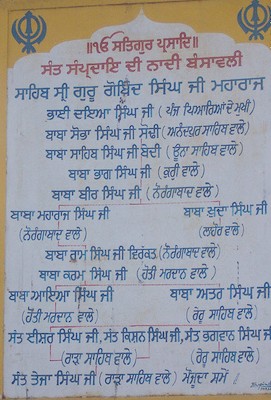 ॥ੴ ਸਤਿਗੁਰ ਪ੍ਰਸਾਦਿ॥
ਸੰਤ ਸੰਪ੍ਰਦਾਇ ਦੀ ਨਾਦੀ ਬੰਸਾਵਲੀ
ਸਾਹਿਬ ਸ੍ਰੀ ਗੁਰੂ ਗੋਬਿੰਦ ਸਿੰਘ ਜੀ ਮਹਾਰਾਜ
ਭਾਈ ਦਇਆ ਸਿੰਘ ਜੀ (ਪੰਜ ਪਿਆਰਿਆਂ ਦੇ ਮੁਖੀ)
ਬਾਬਾ ਸੋਭਾ ਸਿੰਘ ਜੀ ਸੋਢੀ (ਅਨੰਦਪੁਰ ਸਾਹਿਬ ਵਾਲੇ)
ਬਾਬਾ ਸਾਹਿਬ ਸਿੰਘ ਜੀ ਬੇਦੀ (ਊਨਾ ਸਾਹਿਬ ਵਾਲੇ)
ਬਾਬਾ ਭਾਗ ਸਿੰਘ ਜੀ (ਕੁਰੀ ਵਾਲੇ)
ਬਾਬਾ ਬੀਰ ਸਿੰਘ ਜੀ (ਨੌਰੰਗਾਬਾਦ ਵਾਲੇ)
ਬਾਬਾ ਮਹਾਰਾਜ ਸਿੰਘ ਜੀ ਬਾਬਾ ਖੁਦਾ ਸਿੰਘ ਜੀ
(ਨੌਰੰਗਾਬਾਦ ਵਾਲੇ) (ਲਹੌਰ ਵਾਲੇ)
ਬਾਬਾ ਰਾਮ ਸਿੰਘ ਜੀ ਵਿਰੱਕਤ (ਨੌਰੰਗਾਬਾਦ ਵਾਲੇ)
ਬਾਬਾ ਕਰਮ ਸਿੰਘ ਜੀ (ਹੋਤੀ ਮਰਦਾਨ ਵਾਲੇ)
ਬਾਬਾ ਆਇਆ ਸਿੰਘ ਜੀ ਬਾਬਾ ਅਤਰ ਸਿੰਘ ਜੀ
(ਹੋਤੀ ਮਰਦਾਨ ਵਾਲੇ) (ਰੇਰੂ ਸਾਹਿਬ ਵਾਲੇ)
ਸੰਤ ਈਸ਼ਰ ਸਿੰਘ ਜੀ, ਸੰਤ ਕਿਸ਼ਨ ਸਿੰਘ ਜੀ, ਸੰਤ ਭਗਵਾਨ ਸਿੰਘ ਜੀ
(ਰਾੜਾ ਸਾਹਿਬ ਵਾਲੇ) (ਰੇਰੂ ਸਾਹਿਬ ਵਾਲੇ)
ਸੰਤ ਤੇਜਾ ਸਿੰਘ ਜੀ (ਰਾੜਾ ਸਾਹਿਬ ਵਾਲੇ) ਮੌਜੂਦਾ ਸਮੇਂ